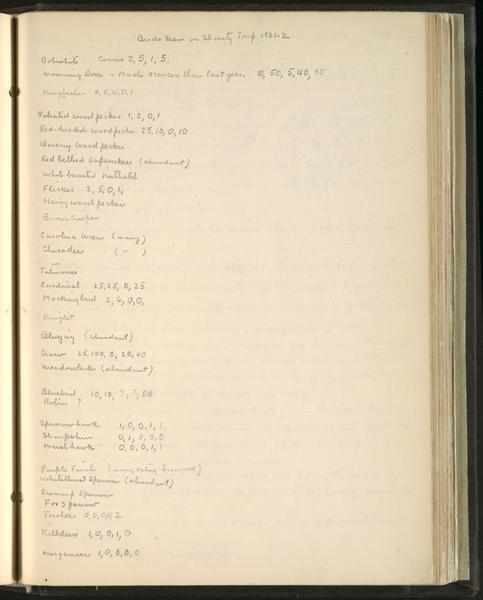 Birds Seen on Shanty Trip 1931-2
Bobwhite. Covies 3, 5, 1, 5.
Mourning Dove - Much scarcer than last year. 10, 50, 5, 40, 50
Kingfisher 0, 0, 0, 0, 1
Pileated woodpecker 1, 2, 0, 1
Red-headed woodpecker 25, 10, 0, 10
Downy woodpecker
Red bellied Sapsuckers (abundant)
White breasted Nuthatch
Flicker 2, 5, 0, 1,
Hairy woodpecker
Brown Creeper
Carolina Wren (many)
Chicadee ( " )
Titmouse
Cardinal 25, 25, 0, 25
Mockingbird 2, 6, 0, 0,
Kinglet
Bluejay (abundant)
Crow 25, 100, 0, 20, 40
Meadowlarks (abundant)
Bluebird 10, 10, ?, ?, 50
Robin ?
Sparrow hawk 1, 0, 0, 1, 1
Sharpshin 0, 1, 0, 0, 0
Marsh hawk 0, 0, 0, 1, 1
Purple Finch (many, eating
Whitethroat Sparrow (abundant)
Swamp Sparrow
Fox Sparrow
Towhee 0, 0, 0, 0, 2
Killdeer 1, 0, 0, 1, 0
Merganser 1, 0, 0, 0, 0